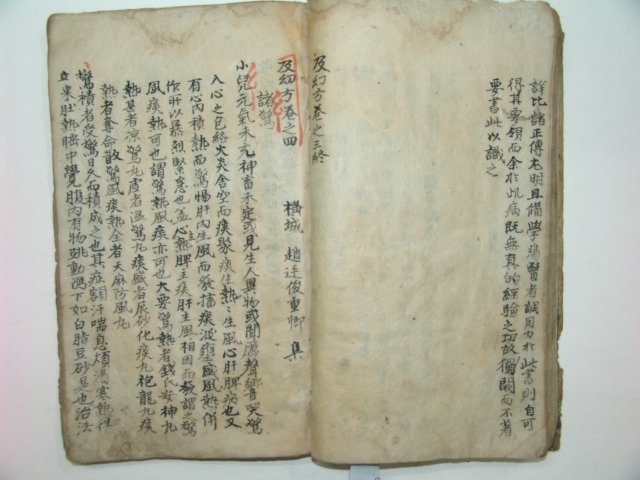 詳比諸正傳尤明且備學瘍醫者誠用力於此書則自可
得其要領而余於此病既無真的經驗之功故獨闕而不著
要書此以識之
及幼方卷之三終
及幼方卷之四
橫城 趙廷俊重卿 集
諸驚
小兒元氣未元神畜未定或見生人異物或聞厲聲響哭驚
入心之包絡火炎舍空而痰聚痰生熱熱生風心肝脾病也又
有心內積熱而驚惕肝內生風而發搐痰涎壅盛風熱併
作肝以暴烈緊急也盖心主熱脾主痰肝主風相因而發謂之驚
風痰熱可也謂驚熱風痰亦可也大要驚熱者錢氏安神丸
熱甚者凉驚丸虛者溫驚丸痰盛者辰砂化痰丸抱龍丸痰
熱者奪命散驚風痰熱全者天麻防風丸
驚積者受驚日久而積成之也其症額汗喘息煩渴寒熱往
來肚熱睡中覺腹內有物跳動瀉下如白脂豆砂是也治法